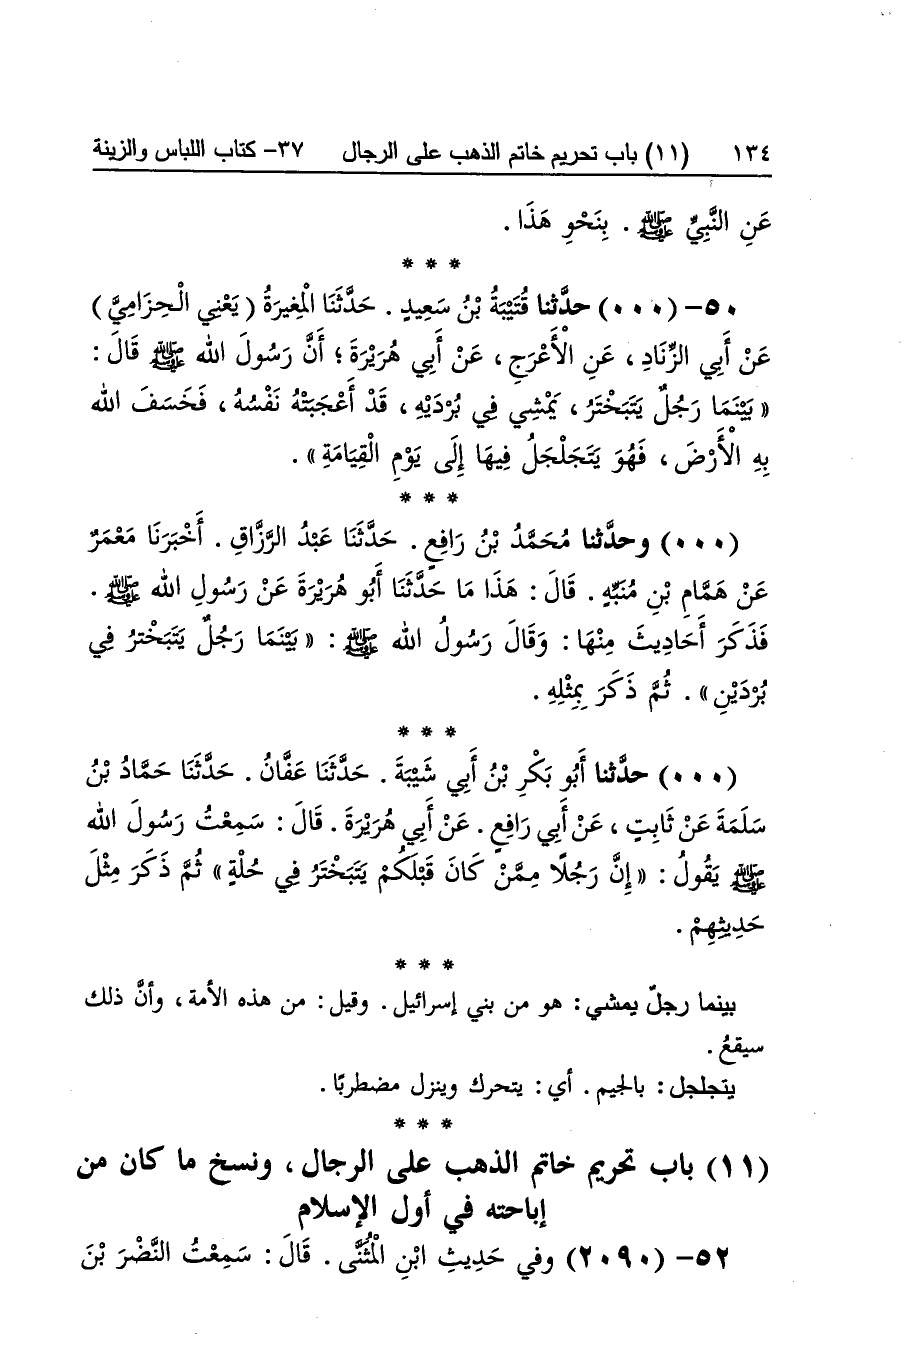 ١٣٤ (١١) باب تحريم خاتم الذهب على الرجال ٣٧- كتاب اللباس والزينة
عَنِ النَّبِيِّ ﷺ . بِنَحْوِ هَذَا .
* * *
٥٠- (٠٠٠) حدَّثنا قُتَيْبَةُ بْنُ سَعِيدٍ . حَدَّثَنَا الْمُغِيرَةُ ( يَعْنِي الْحِزَامِيَّ )
عَنْ أَبِي الزِّنَادِ ، عَنِ الْأَعْرَجِ ، عَنْ أَبِي هُرَيْرَةَ ؛ أَنَّ رَسُولَ الله ﷺ قَالَ :
« بَيْنَمَا رَجُلٌ يَتَبَخْتَرُ ، يَمْشِي فِي بُرْدَيْهِ ، قَدْ أَعْجَبَتْهُ نَفْسُهُ ، فَخَسَفَ الله
بِهِ الْأَرْضَ ، فَهُوَ يَتَجَلْجَلُ فِيهَا إِلَى يَوْمِ الْقِيَامَةِ » .
* * *
(٠٠٠) وحدَّثنا مُحَمَّدُ بْنُ رَافِعٍ . حَدَّثَنَا عَبْدُ الرَّزَّاقِ . أَخْبَرَنَا مَعْمَرٌ
عَنْ هَمَّامِ بْنِ مُنَبِّهٍ . قَالَ : هَذَا مَا حَدَّثَنَا أَبُو هُرَيْرَةَ عَنْ رَسُولِ الله ﷺ .
فَذَكَرَ أَحَادِيثَ مِنْهَا : وَقَالَ رَسُولُ الله ﷺ : « بَيْنَمَا رَجُلٌ يَتَبَخْتَرُ فِي
بُرْدَيْنِ » . ثُمَّ ذَكَرَ بِمِثْلِهِ .
* * *
(٠٠٠) حدَّثنا أَبُو بَكْرِ بْنُ أَبِي شَيْبَةَ . حَدَّثَنَا عَفَّانُ . حَدَّثَنَا حَمَّادُ بْنُ
سَلَمَةَ عَنْ ثَابِتٍ ، عَنْ أَبِي رَافِعٍ . عَنْ أَبِي هُرَيْرَةَ . قَالَ : سَمِعْتُ رَسُولَ الله
ﷺ يَقُولُ : « إِنَّ رَجُلًا مِمَّنْ كَانَ قَبْلَكُمْ يَتَبَخْتَرُ فِي حُلْةٍ » ثُمَّ ذَكَرَ مِثْلَ
حَدِيثِهِمْ .
* * *
بينما رجلٌ يمشي : هو من بني إسرائيل . وقيل : من هذه الأمة ، وأنَّ ذلك
سيقعُ .
يتجلجل : بالجيم . أي : يتحرك وينزل مضطربًا .
* * *
(١١) باب تحريم خاتم الذهب على الرجال ، ونسخ ما كان من
إباحته في أول الإسلام
٥٢- (٢٠٩٠) وفي حَدِيثِ ابْنِ الْمُثَنَّى . قَالَ : سَمِعْتُ النَّضْرَ بْنَ